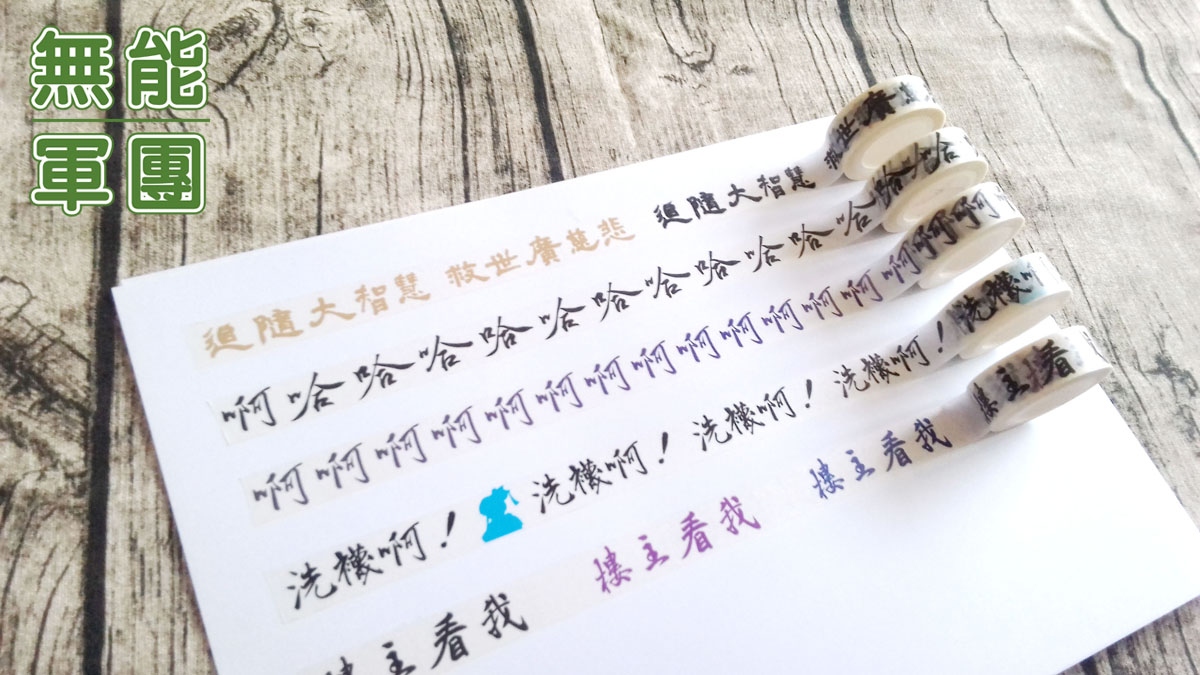 無能
軍團
追隨大智慧 救世廣慈悲 追隨大智慧 救世廣
啊哈哈哈哈哈哈哈哈哈哈哈哈哈
啊啊啊啊啊啊啊啊啊啊啊啊啊啊啊啊啊
洗機啊！ 洗機啊！ 洗機啊！ 洗機啊！ 洗機
樓主看我 樓主看我 樓主看我 樓主看